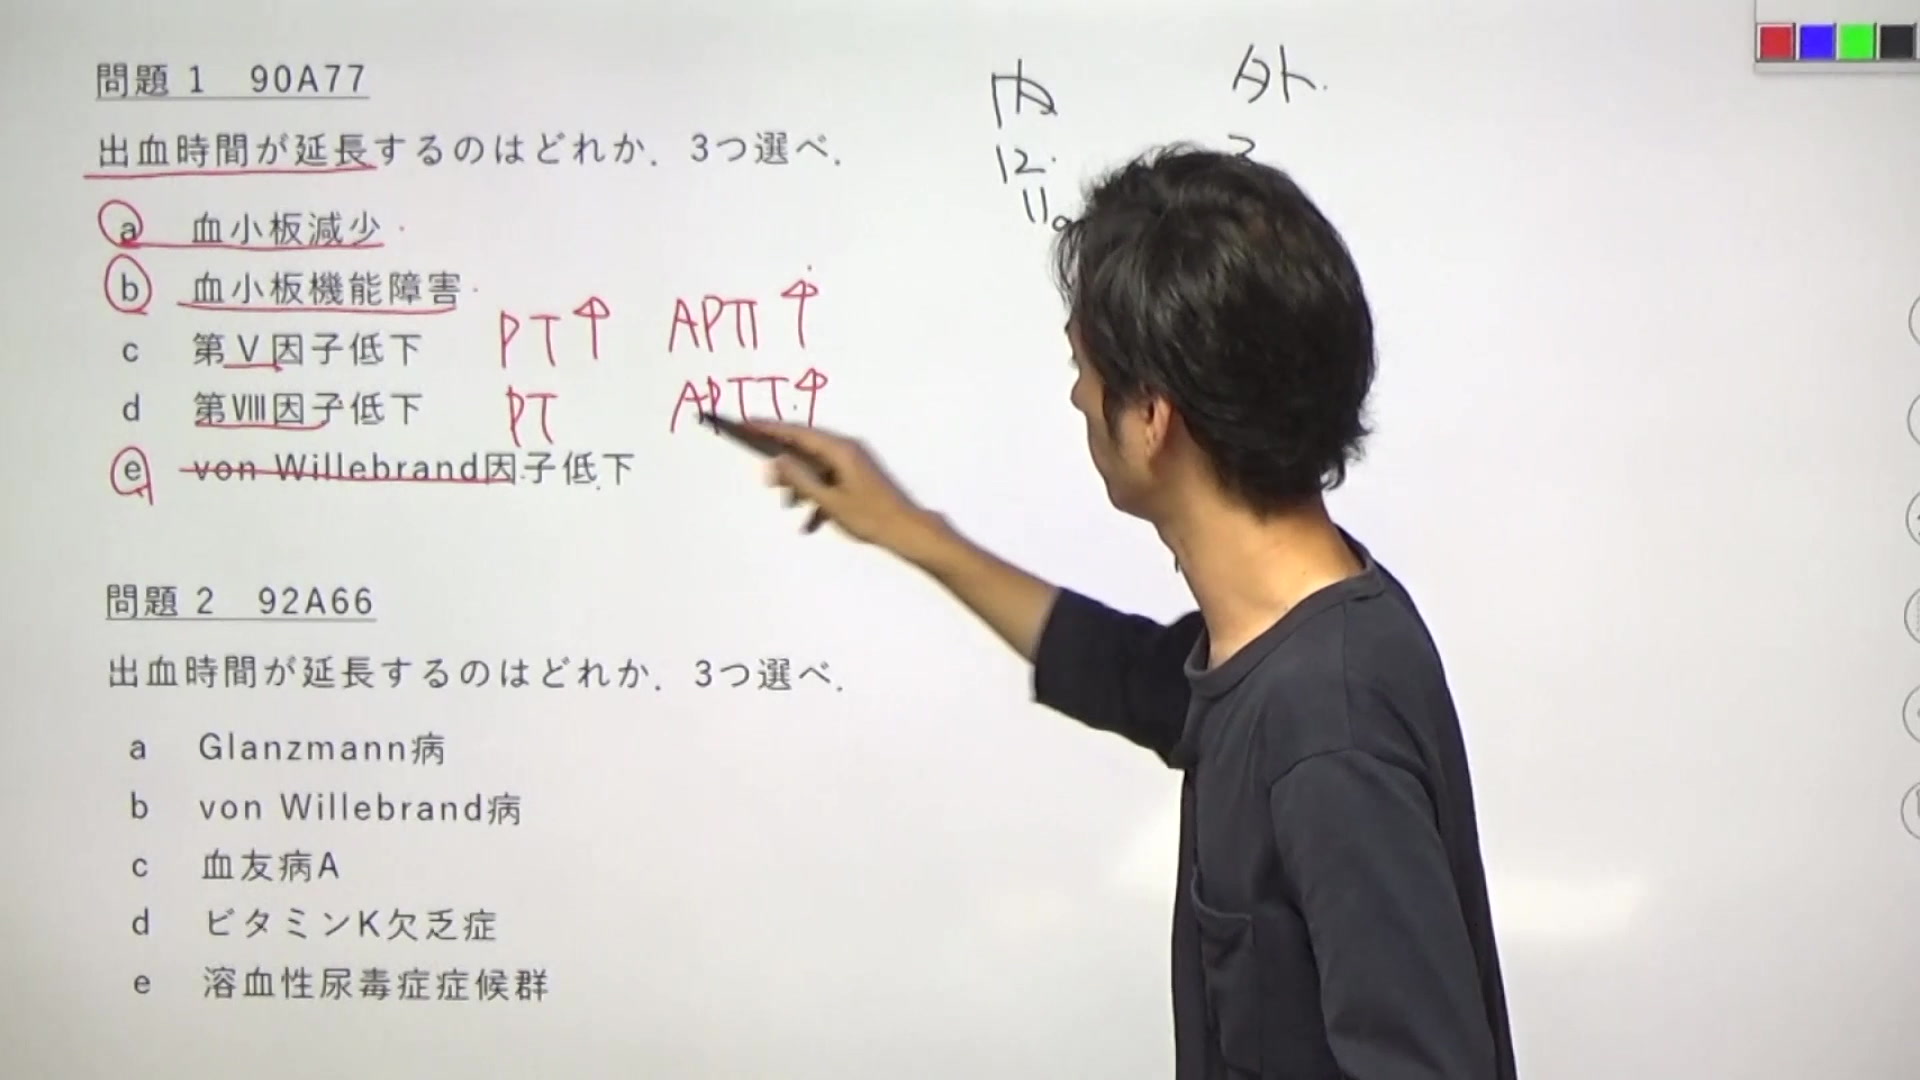 問題1 90A77
出血時間が延長するのはどれか. 3つ選べ.
a 血小板減少
b 血小板機能障害
c 第Ⅴ因子低下 PT↑ APTT↑
d 第Ⅷ因子低下 PT APTT↑
e von Willebrand因子低下
問題2 92A66
出血時間が延長するのはどれか. 3つ選べ.
a Glanzmann病
b von Willebrand病
c 血友病A
d ビタミンK欠乏症
e 溶血性尿毒症症候群
内 外
12
11